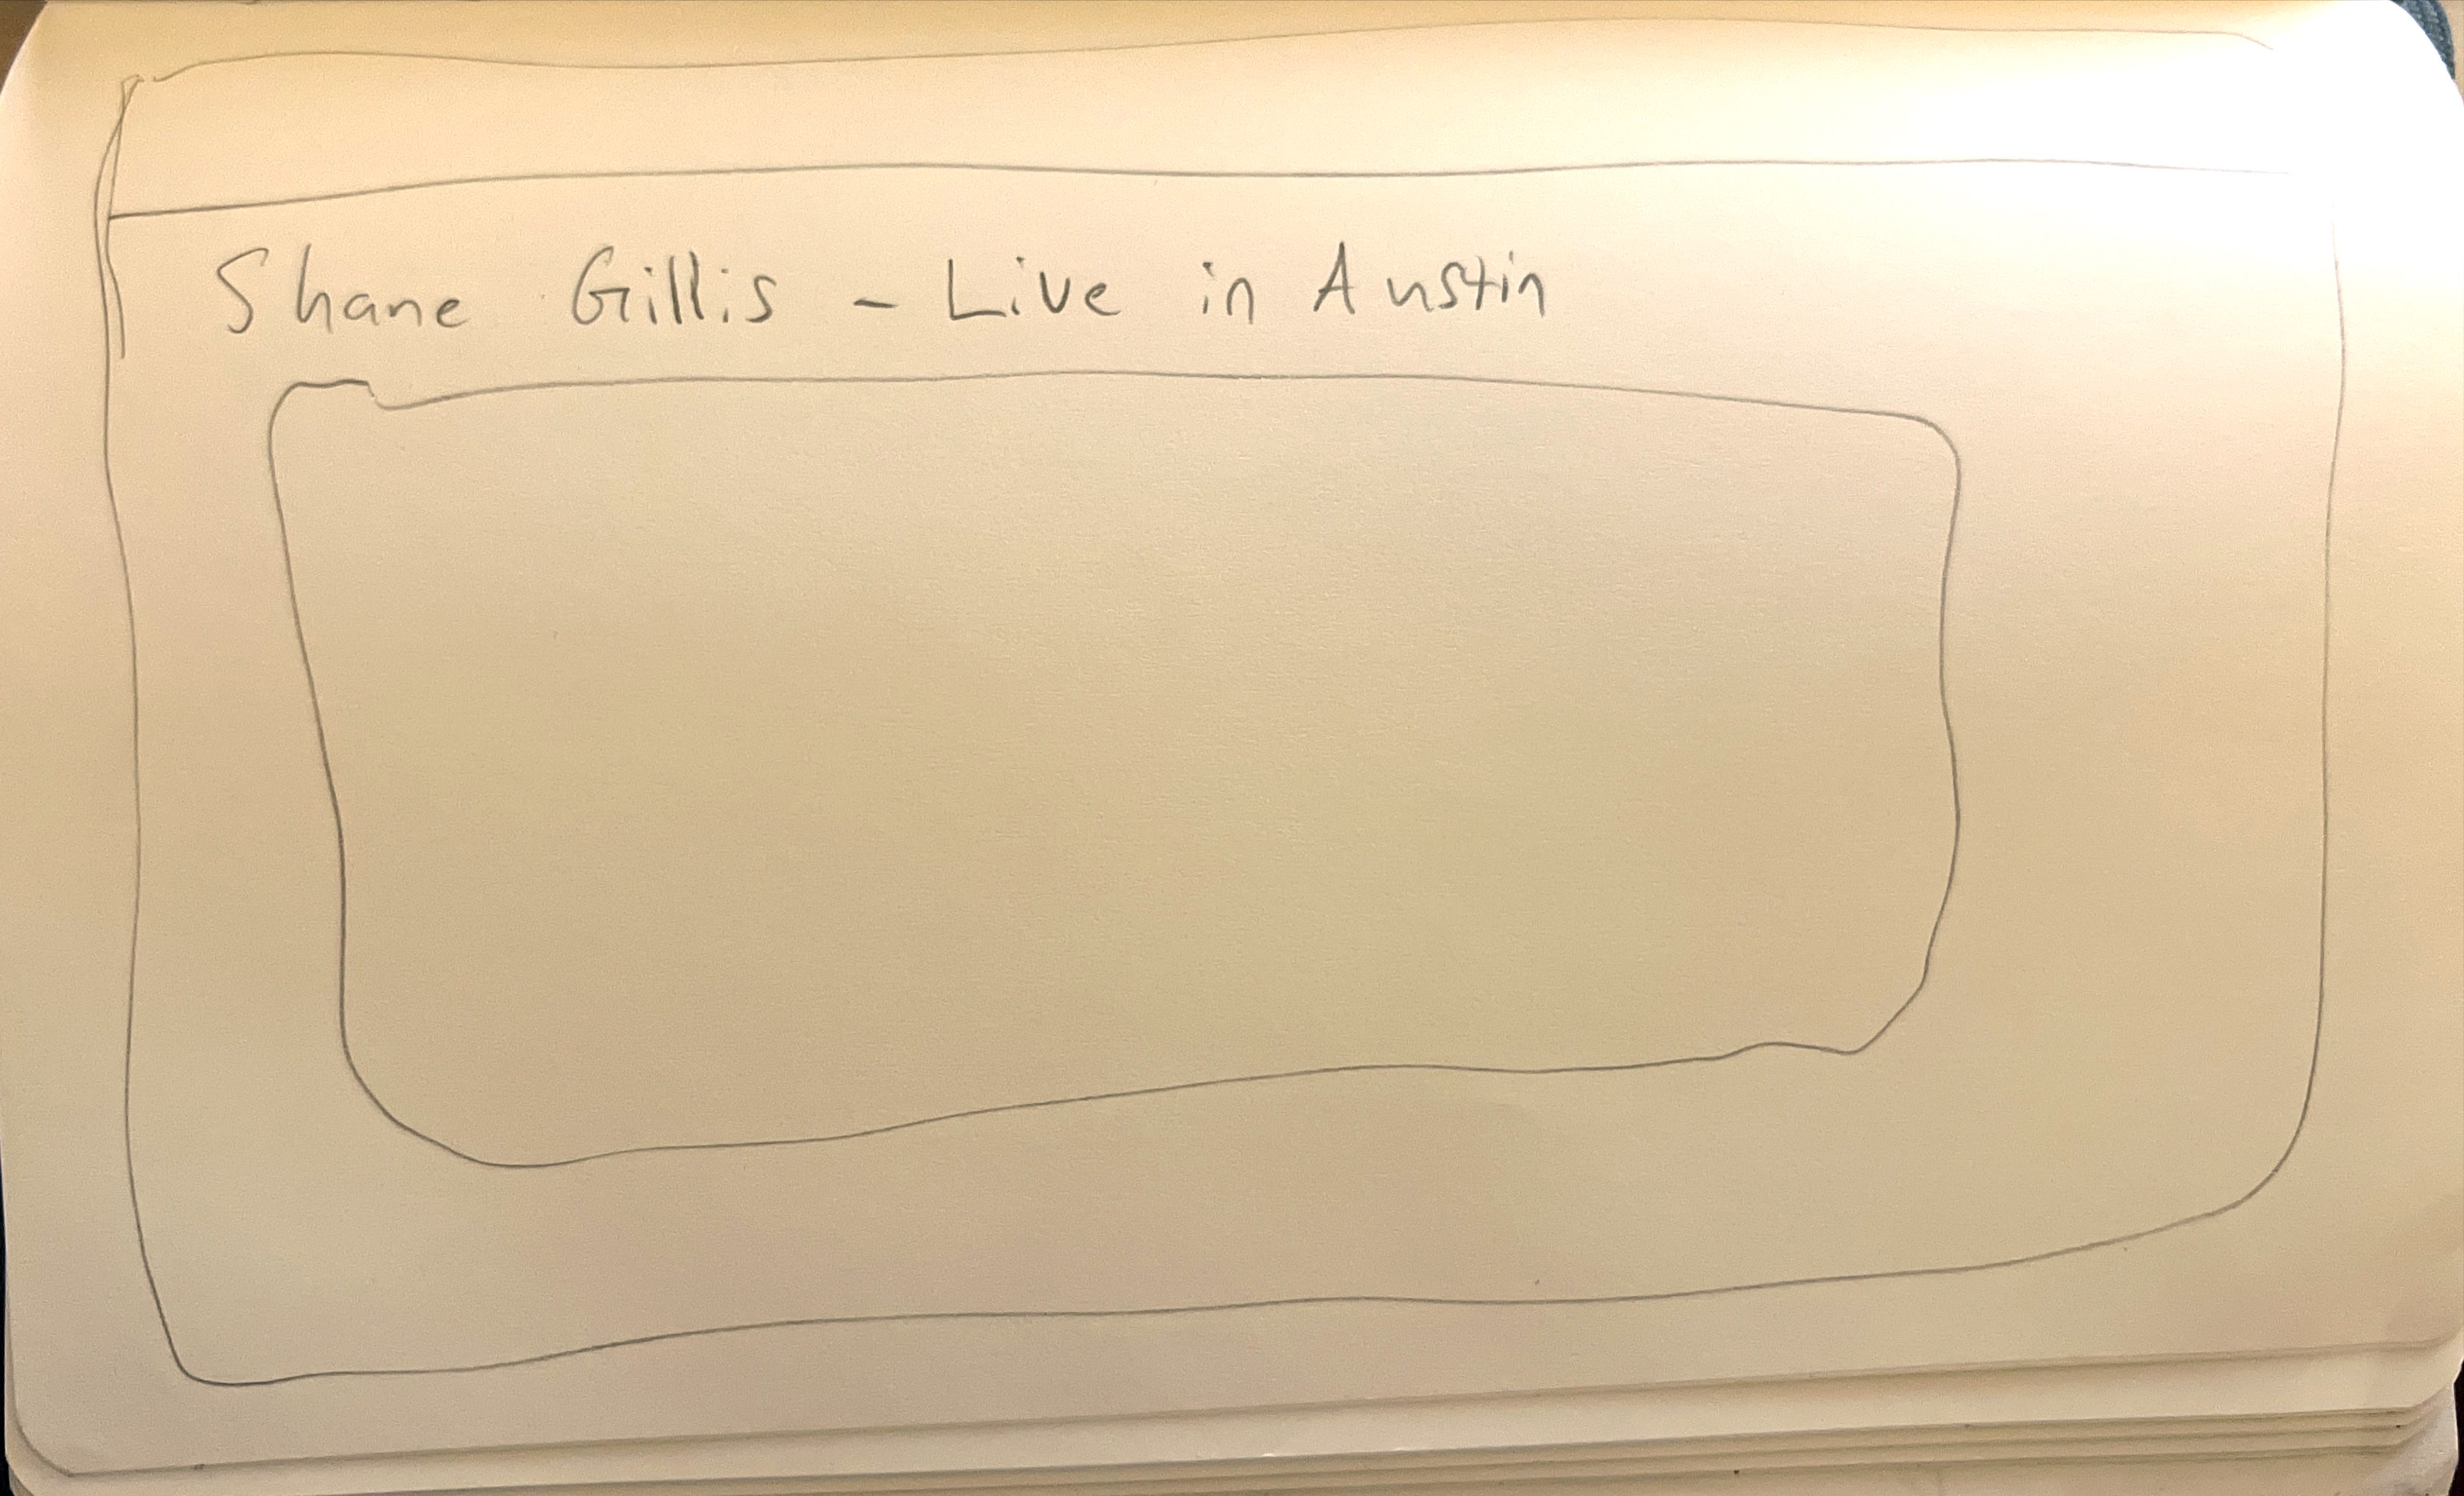 Shane Gillis - Live in Austin